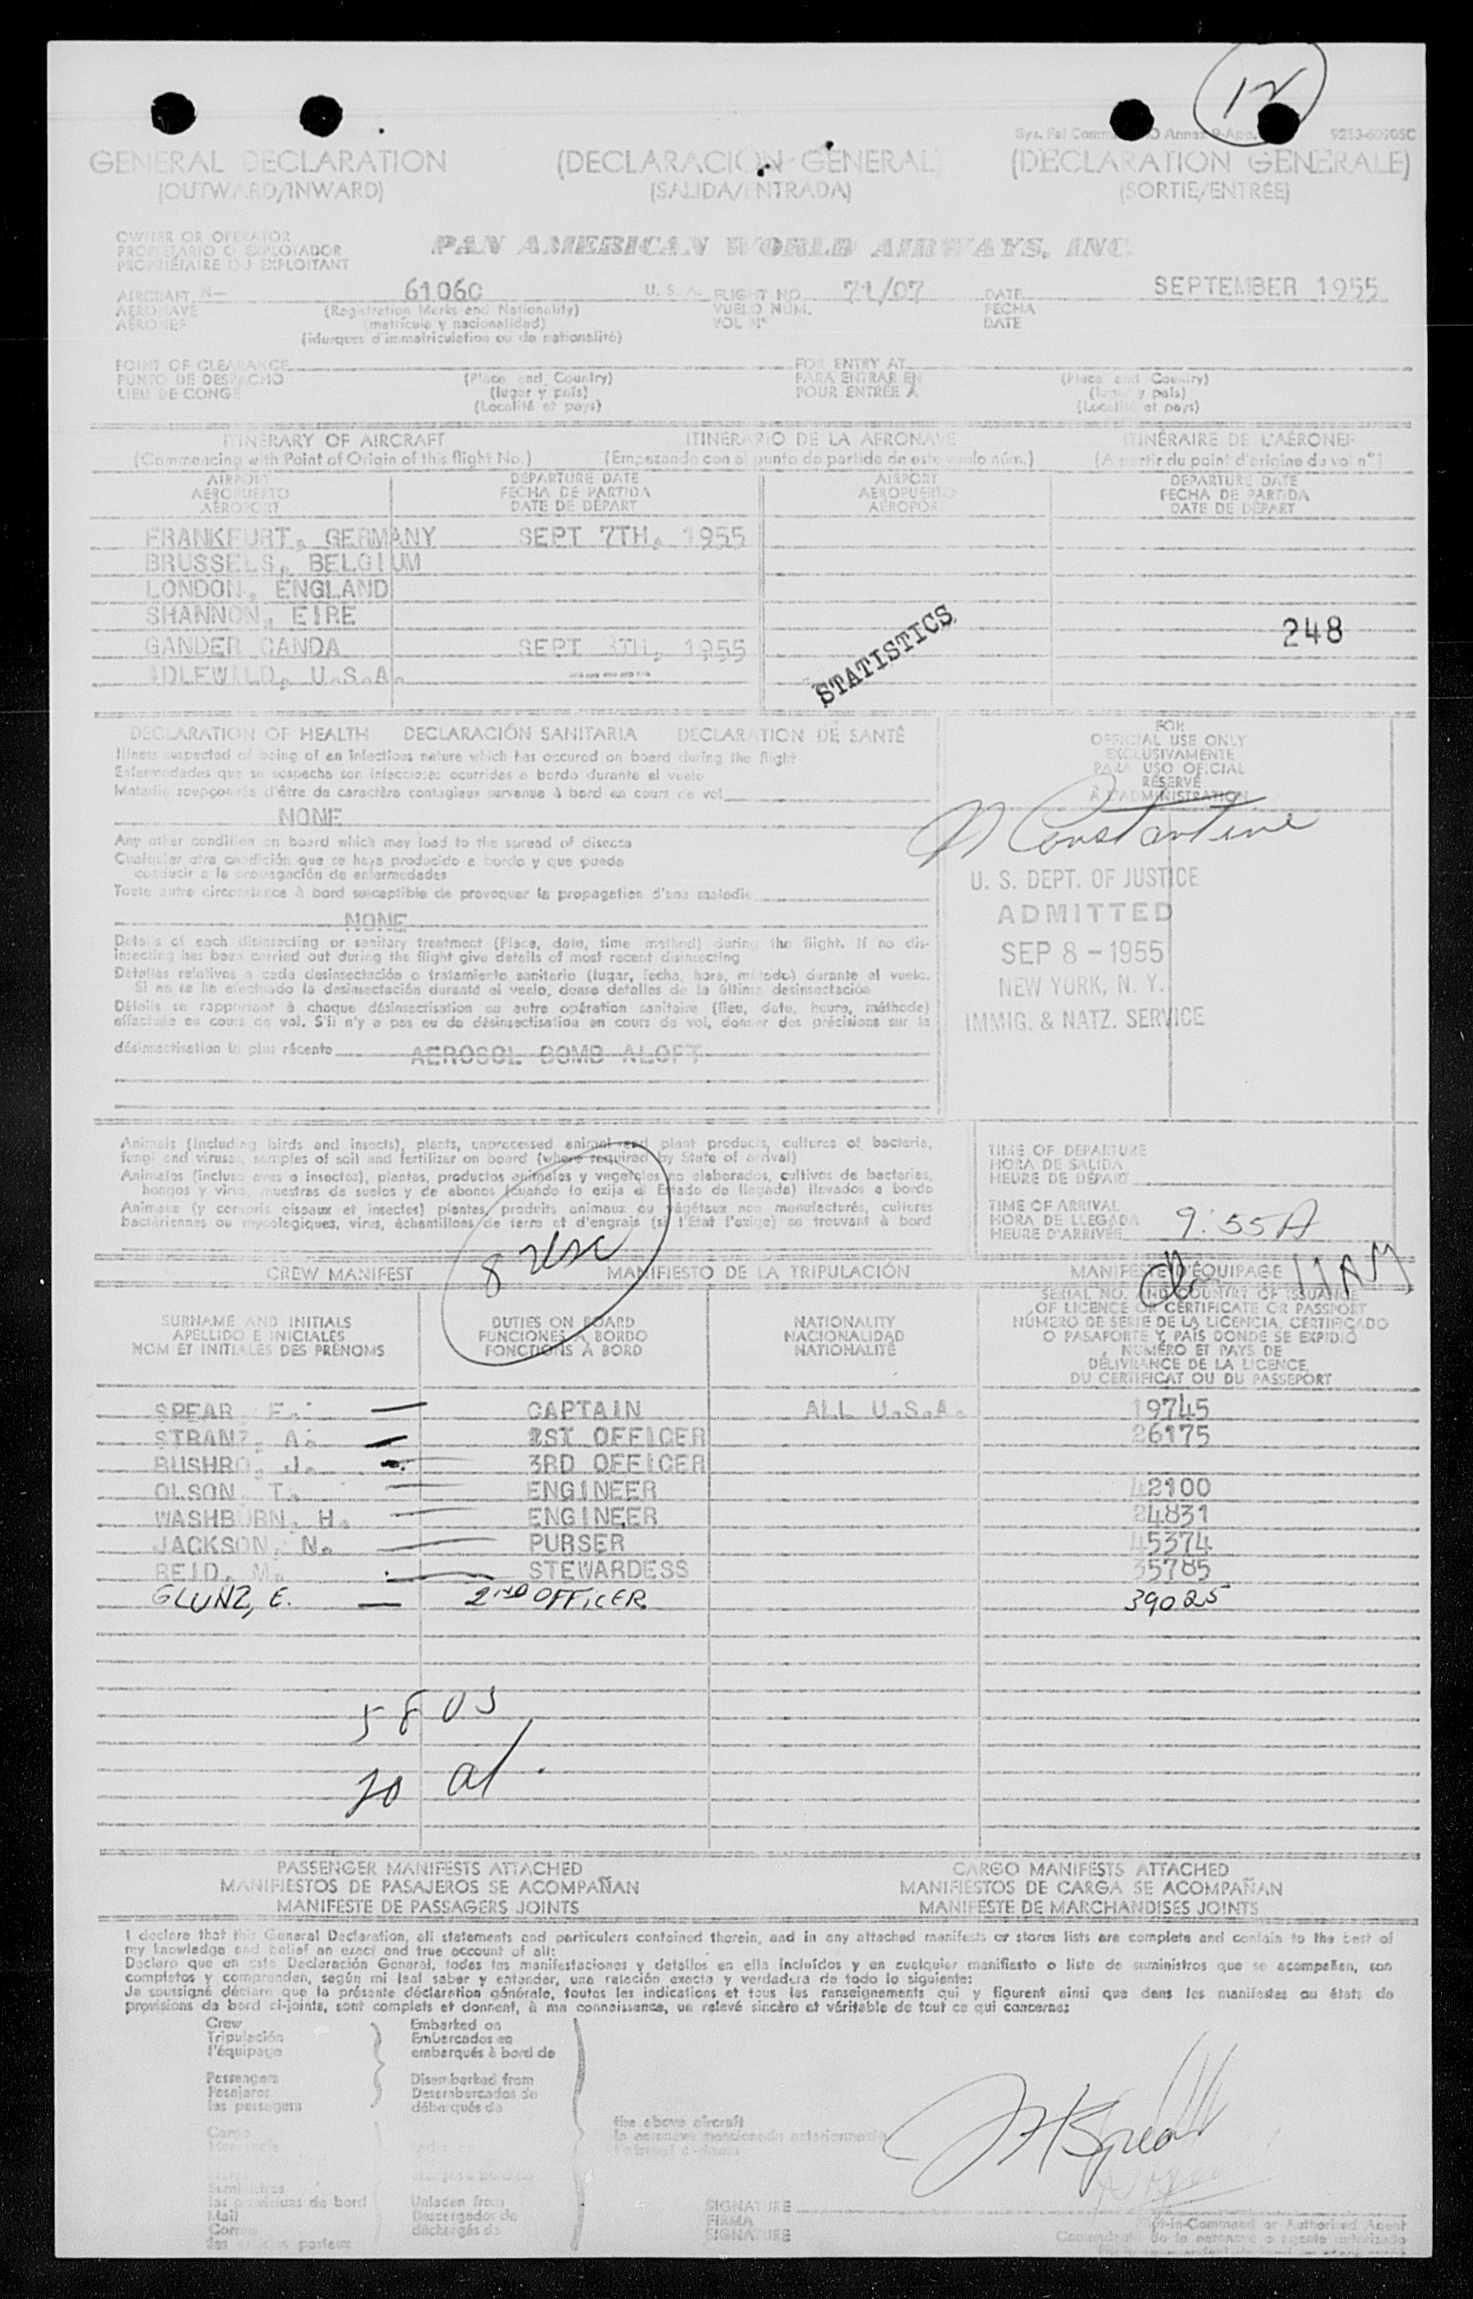 12
9253-60905C
GENERAL DECLARATION (DECLARACIÓN GENERAL) (DECLARATION GENERALE)
(OUTWARD/INWARD) (SALIDA/ENTRADA) (SORTIE/ENTRÉE)
OWNER OR OPERATOR
PROPIETARIO O EXPLOTADOR PAN AMERICAN WORLD AIRWAYS, INC.
PROPRIÉTAIRE OU EXPLOITANT
AIRCRAFT N- 61060 U. S. A. FLIGHT NO. 71/07 DATE SEPTEMBER 1955
AERONAVE (Registration Marks and Nationality) VUELO NUM. FECHA
AERONEF (matrícula y nacionalidad) VOL Nº DATE
(Marques d'immatriculation ou de nationalité)
POINT OF CLEARANCE FOR ENTRY AT
PUNTO DE DESPACHO (Place and Country) PARA ENTRAR EN (Place and Country)
LIEU DE CONGE (lugar y país) POUR ENTRÉE À (lugar y país)
(Localité et pays) (Localité et pays)
ITINERARY OF AIRCRAFT ITINERARIO DE LA AERONAVE ITINÉRAIRE DE L'AÉRONEF
(Commencing with Point of Origin of this flight No.) (Empezando con el punto de partida de este vuelo núm.) (A partir du point d'origine du vol nº)
AIRPORT DEPARTURE DATE AIRPORT DEPARTURE DATE
AEROPUERTO FECHA DE PARTIDA AEROPUERTO FECHA DE PARTIDA
AÉROPORT DATE DE DÉPART AÉROPORT DATE DE DÉPART
FRANKFURT, GERMANY SEPT 7TH, 1955
BRUSSELS, BELGIUM
LONDON, ENGLAND
SHANNON, EIRE
248
GANDER CANDA SEPT 8TH, 1955
STATISTICS
IDLEWILD, U.S.A. -----
DECLARATION OF HEALTH DECLARACIÓN SANITARIA DECLARATION DE SANTÉ
FOR
OFFICIAL USE ONLY
EXCLUSIVAMENTE
PARA USO OFICIAL
RÉSERVÉ
À L'ADMINISTRATION
Illness suspected of being of an infectious nature which has occured on board during the flight
Enfermedades que se sospecha son infecciosas ocurridas a bordo durante el vuelo
Maladie soupçonnée d'être de caractère contagieux survenue à bord en cours de vol
NONE
Constantine
Any other condition on board which may lead to the spread of disease
Cualquier otra condición que se haya producido a bordo y que pueda
conducir a la propagación de enfermedades
Toute autre circonstance à bord susceptible de provoquer la propagation d'une maladie
NONE
U. S. DEPT. OF JUSTICE
ADMITTED
SEP 8 - 1955
NEW YORK, N. Y.
IMMIG. & NATZ. SERVICE
Details of each disinsecting or sanitary treatment (Place, date, time method) during the flight. If no dis-
insecting has been carried out during the flight give details of most recent disinsecting
Detalles relativos a cada desinsectación o tratamiento sanitario (lugar, fecha, hora, método) durante el vuelo.
Si no se ha efectuado la desinsectación durante el vuelo, dense detalles de la última desinsectación
Détails se rapportant à chaque désinsectisation ou autre opération sanitaire (lieu, date, heure, méthode)
effectuée en cours de vol. S'il n'y a pas eu de désinsectisation en cours de vol, donner des précisions sur la
désinsectisation la plus récente AEROSOL BOMB ALOFT
Animals (including birds and insects), plants, unprocessed animal and plant products, cultures of bacteria,
fungi and viruses, samples of soil and fertilizer on board (where required by State of arrival)
Animales (incluso aves e insectos), plantas, productos animales y vegetales no elaborados, cultivos de bacterias,
hongos y virus, muestras de suelos y de abonos (cuando lo exija el Estado de llegada) llevados a bordo
Animaux (y compris oiseaux et insectes) plantes, produits animaux ou végétaux non manufacturés, cultures
bactériennes ou mycologiques, virus, échantillons de terre et d'engrais (si l'Etat l'exige) se trouvant à bord
TIME OF DEPARTURE
HORA DE SALIDA
HEURE DE DÉPART
TIME OF ARRIVAL
HORA DE LLEGADA 9:55A
HEURE D'ARRIVÉE
8 usc
11AM
CREW MANIFEST MANIFIESTO DE LA TRIPULACIÓN MANIFESTE D'ÉQUIPAGE
SURNAME AND INITIALS DUTIES ON BOARD NATIONALITY
APELLIDO E INICIALES FUNCIONES A BORDO NACIONALIDAD
NOM ET INITIALES DES PRÉNOMS FONCTIONS À BORD NATIONALITÉ
SERIAL NO. AND COUNTRY OF ISSUANCE
OF LICENCE OR CERTIFICATE OR PASSPORT
NÚMERO DE SERIE DE LA LICENCIA, CERTIFICADO
O PASAPORTE Y PAÍS DONDE SE EXPIDIÓ
NUMÉRO ET PAYS DE
DÉLIVRANCE DE LA LICENCE,
DU CERTIFICAT OU DU PASSEPORT
SPEAR, F. CAPTAIN ALL U.S.A. 19745
STRANZ, A. 1ST OFFICER 26175
BUSHRO, J. 3RD OFFICER
OLSON, T. ENGINEER 42100
WASHBURN, H. ENGINEER 24831
JACKSON, N. PURSER 45374
REID, M. STEWARDESS 35785
GLUNZ, E. 2ND OFFICER 39025
58 US
20 al.
PASSENGER MANIFESTS ATTACHED CARGO MANIFESTS ATTACHED
MANIFIESTOS DE PASAJEROS SE ACOMPAÑAN MANIFIESTOS DE CARGA SE ACOMPAÑAN
MANIFESTE DE PASSAGERS JOINTS MANIFESTE DE MARCHANDISES JOINTS
I declare that this General Declaration, all statements and particulars contained therein, and in any attached manifests or stores lists are complete and contain to the best of
my knowledge and belief an exact and true account of all:
Declaro que en esta Declaración General, todas las manifestaciones y detalles en ella incluidos y en cualquier manifiesto o lista de suministros que se acompañen, son
completos y comprenden, según mi leal saber y entender, una relación exacta y verdadera de todo lo siguiente:
Je soussigné déclare que la présente déclaration générale, toutes les indications et tous les renseignements qui y figurent ainsi que dans les manifestes ou états de
provisions de bord ci-joints, sont complets et donnent, à ma connaissance, un relevé sincère et véritable de tout ce qui concerne:
Crew Embarked on
Tripulación Embarcados en
l'équipage embarqués à bord de
Passengers Disembarked from
Pasajeros Desembarcados de
les passagers débarqués de
the above aircraft
Cargo la aeronave mencionada anteriormente
Suministros
les provisions de bord Unladen from
Mail Descargados de
Correo déchargés de
SIGNATURE
FIRMA
SIGNATURE
Pilot-in-Command or Authorized Agent
Comandante de la aeronave o agente autorizado